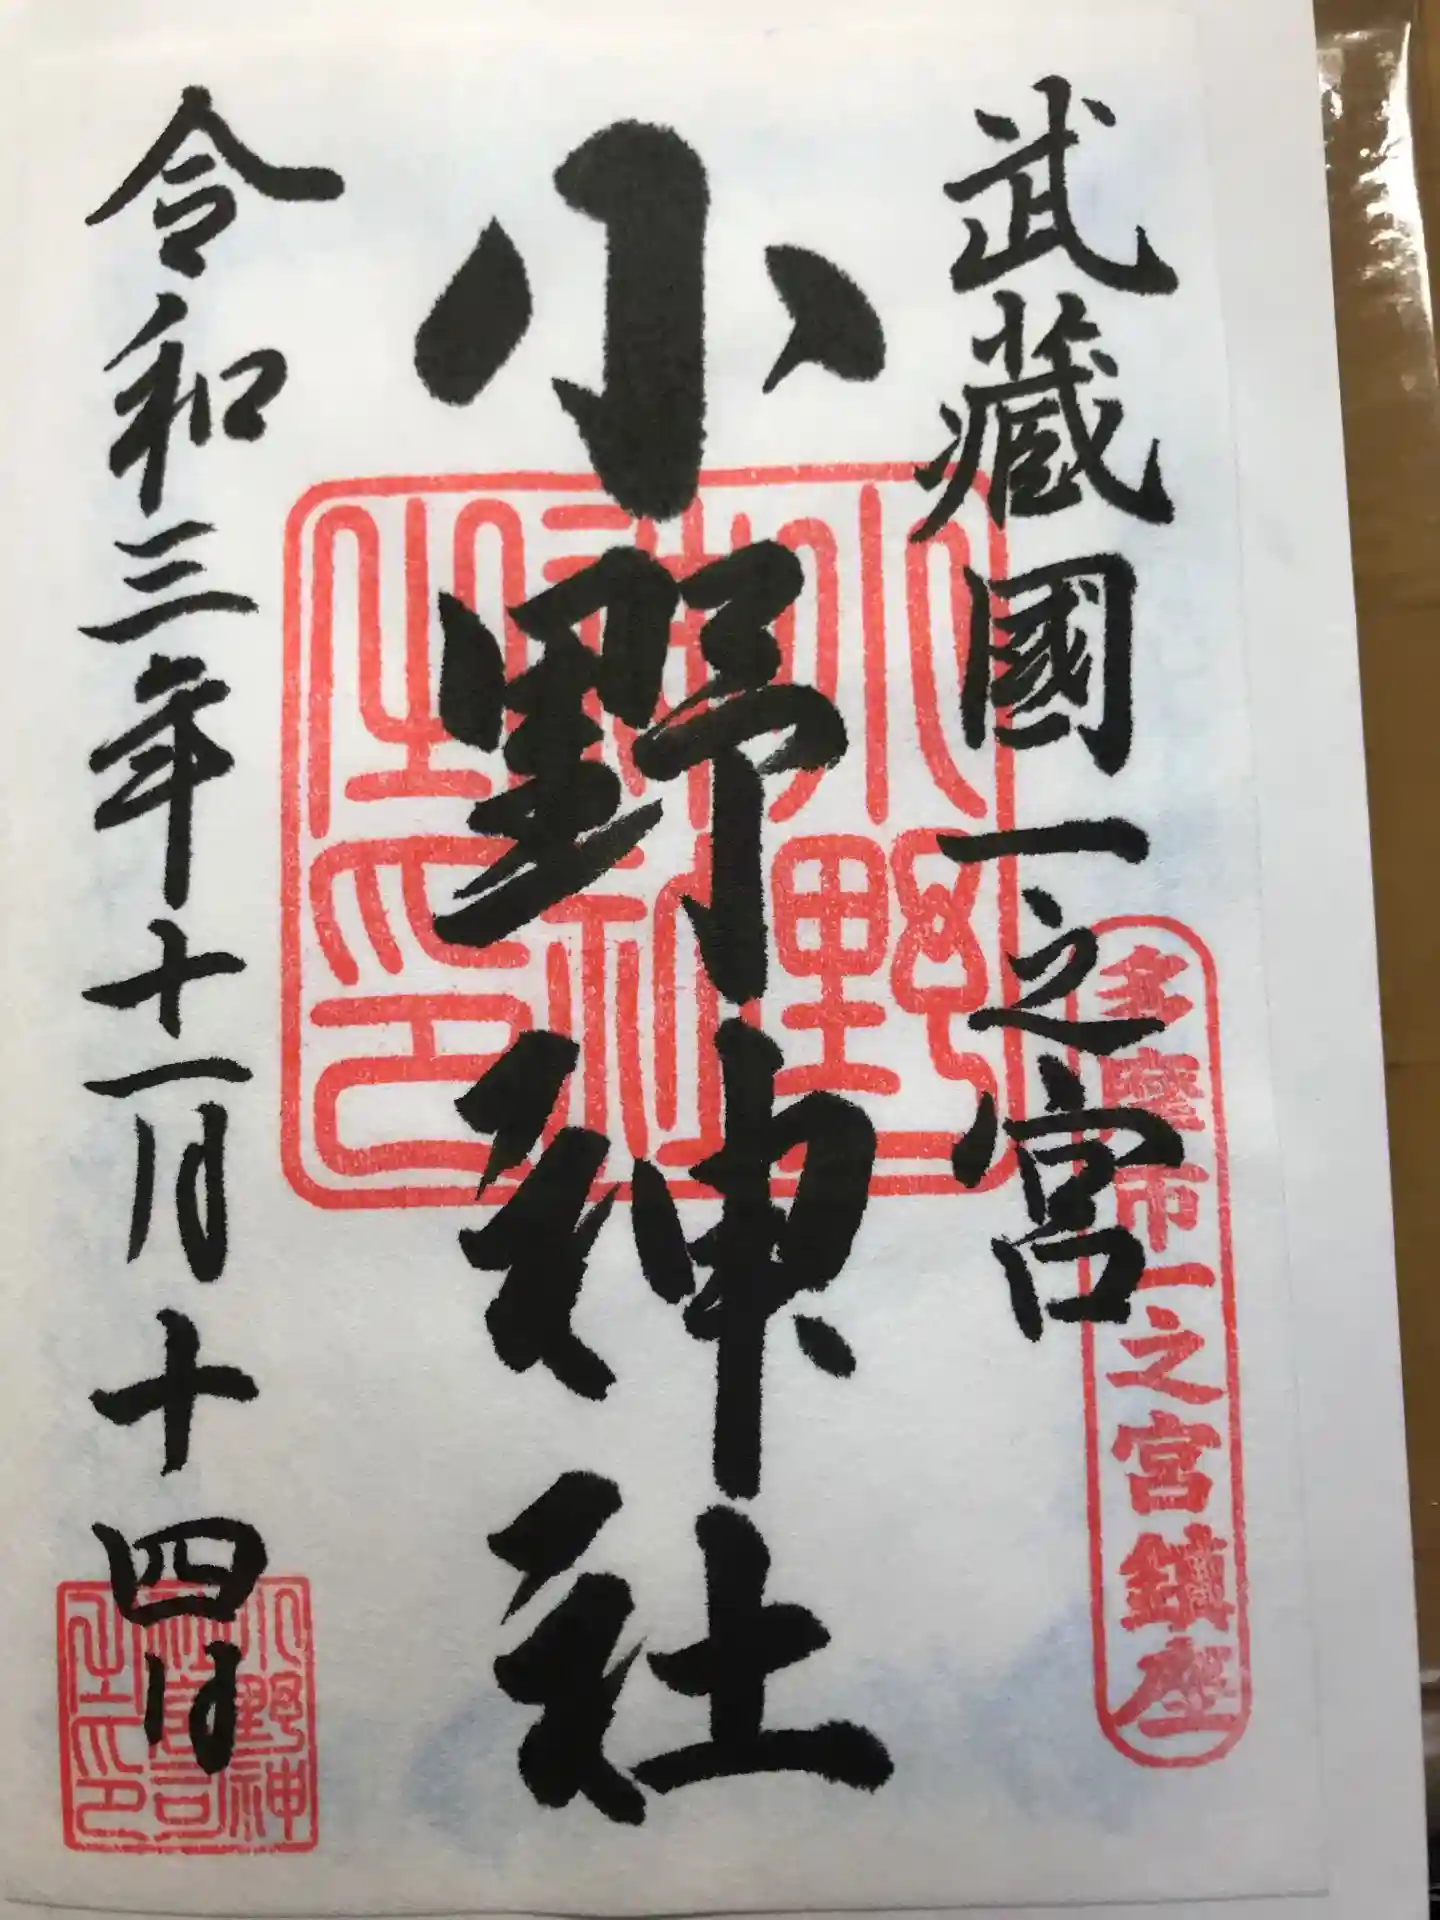 武藏國一之宮
多摩市一之宮鎮座
小野神社
小野神社之印
令和三年十一月十四日
小野神社宮司之印